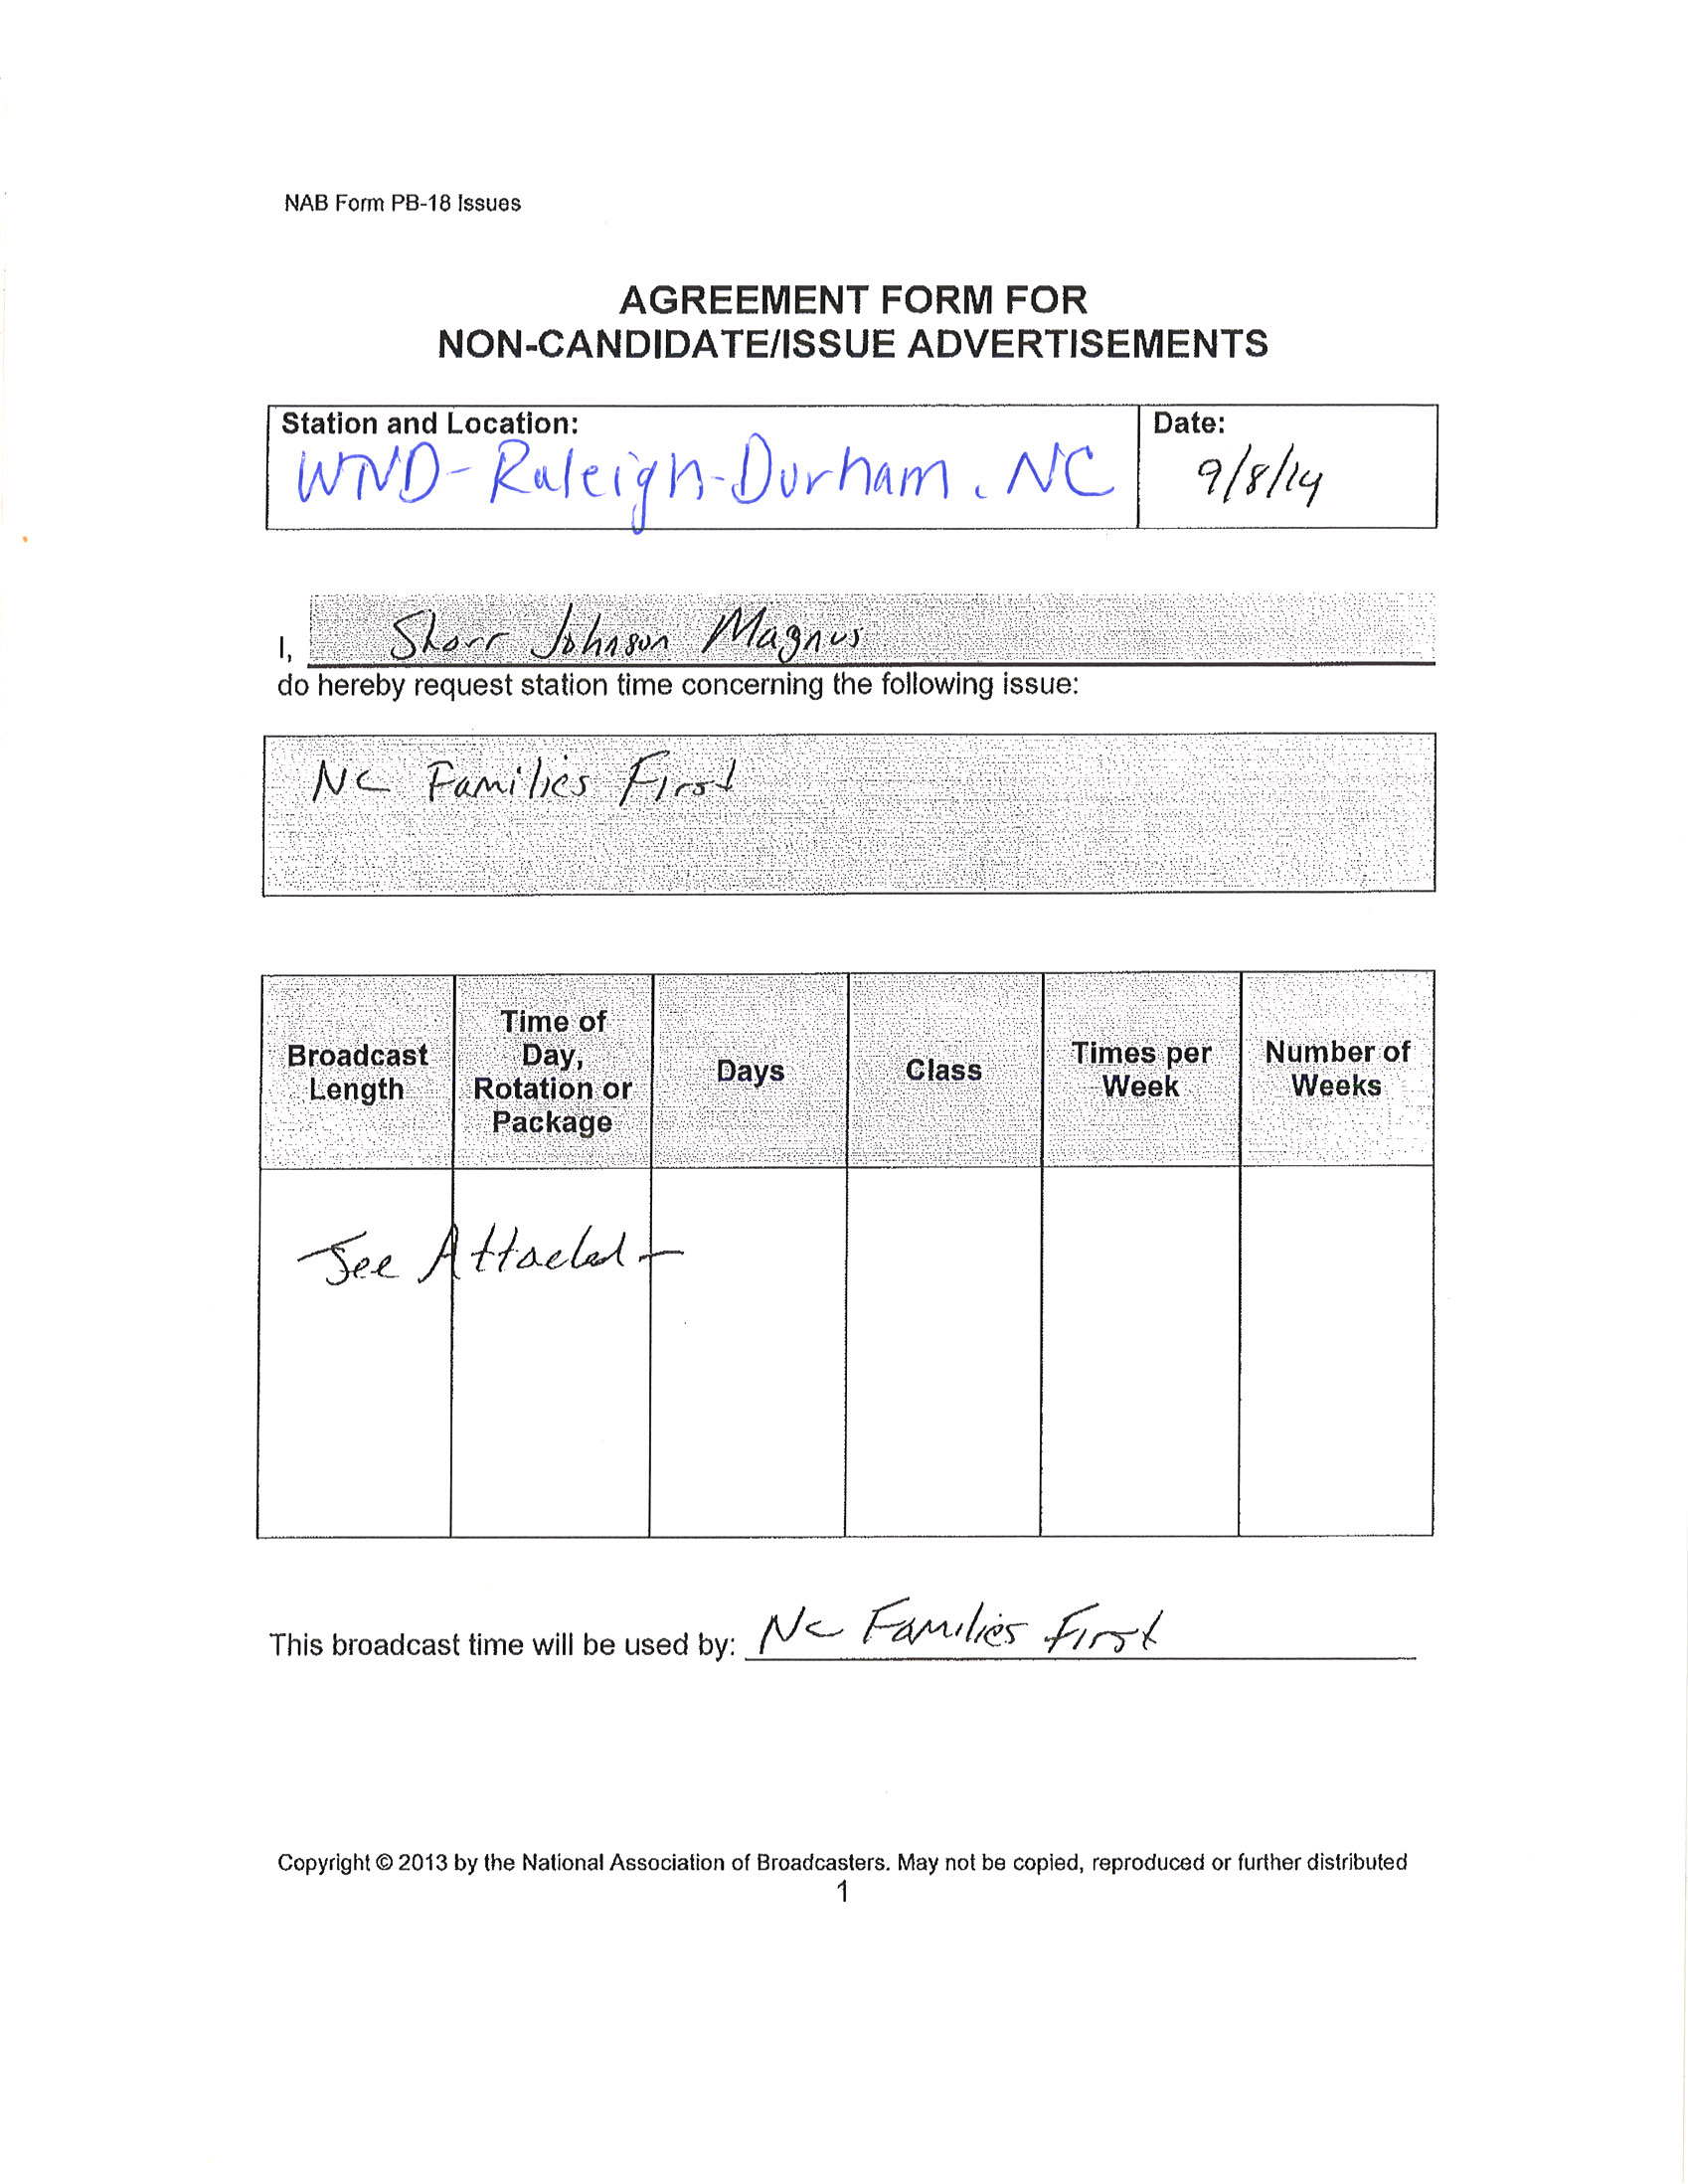 NAB Form PB-18 Issues
AGREEMENT FORM FOR
NON-CANDIDATE/ISSUE ADVERTISEMENTS
Station and Location:
Date:
WTVD-Raleigh-Durham, NC
9/8/14
I, Shorr Johnson Magnus
do hereby request station time concerning the following issue:
NC Families First
Broadcast Length
Time of Day, Rotation or Package
Days
Class
Times per Week
Number of Weeks
See Attached
This broadcast time will be used by: NC Families First
Copyright © 2013 by the National Association of Broadcasters. May not be copied, reproduced or further distributed
1